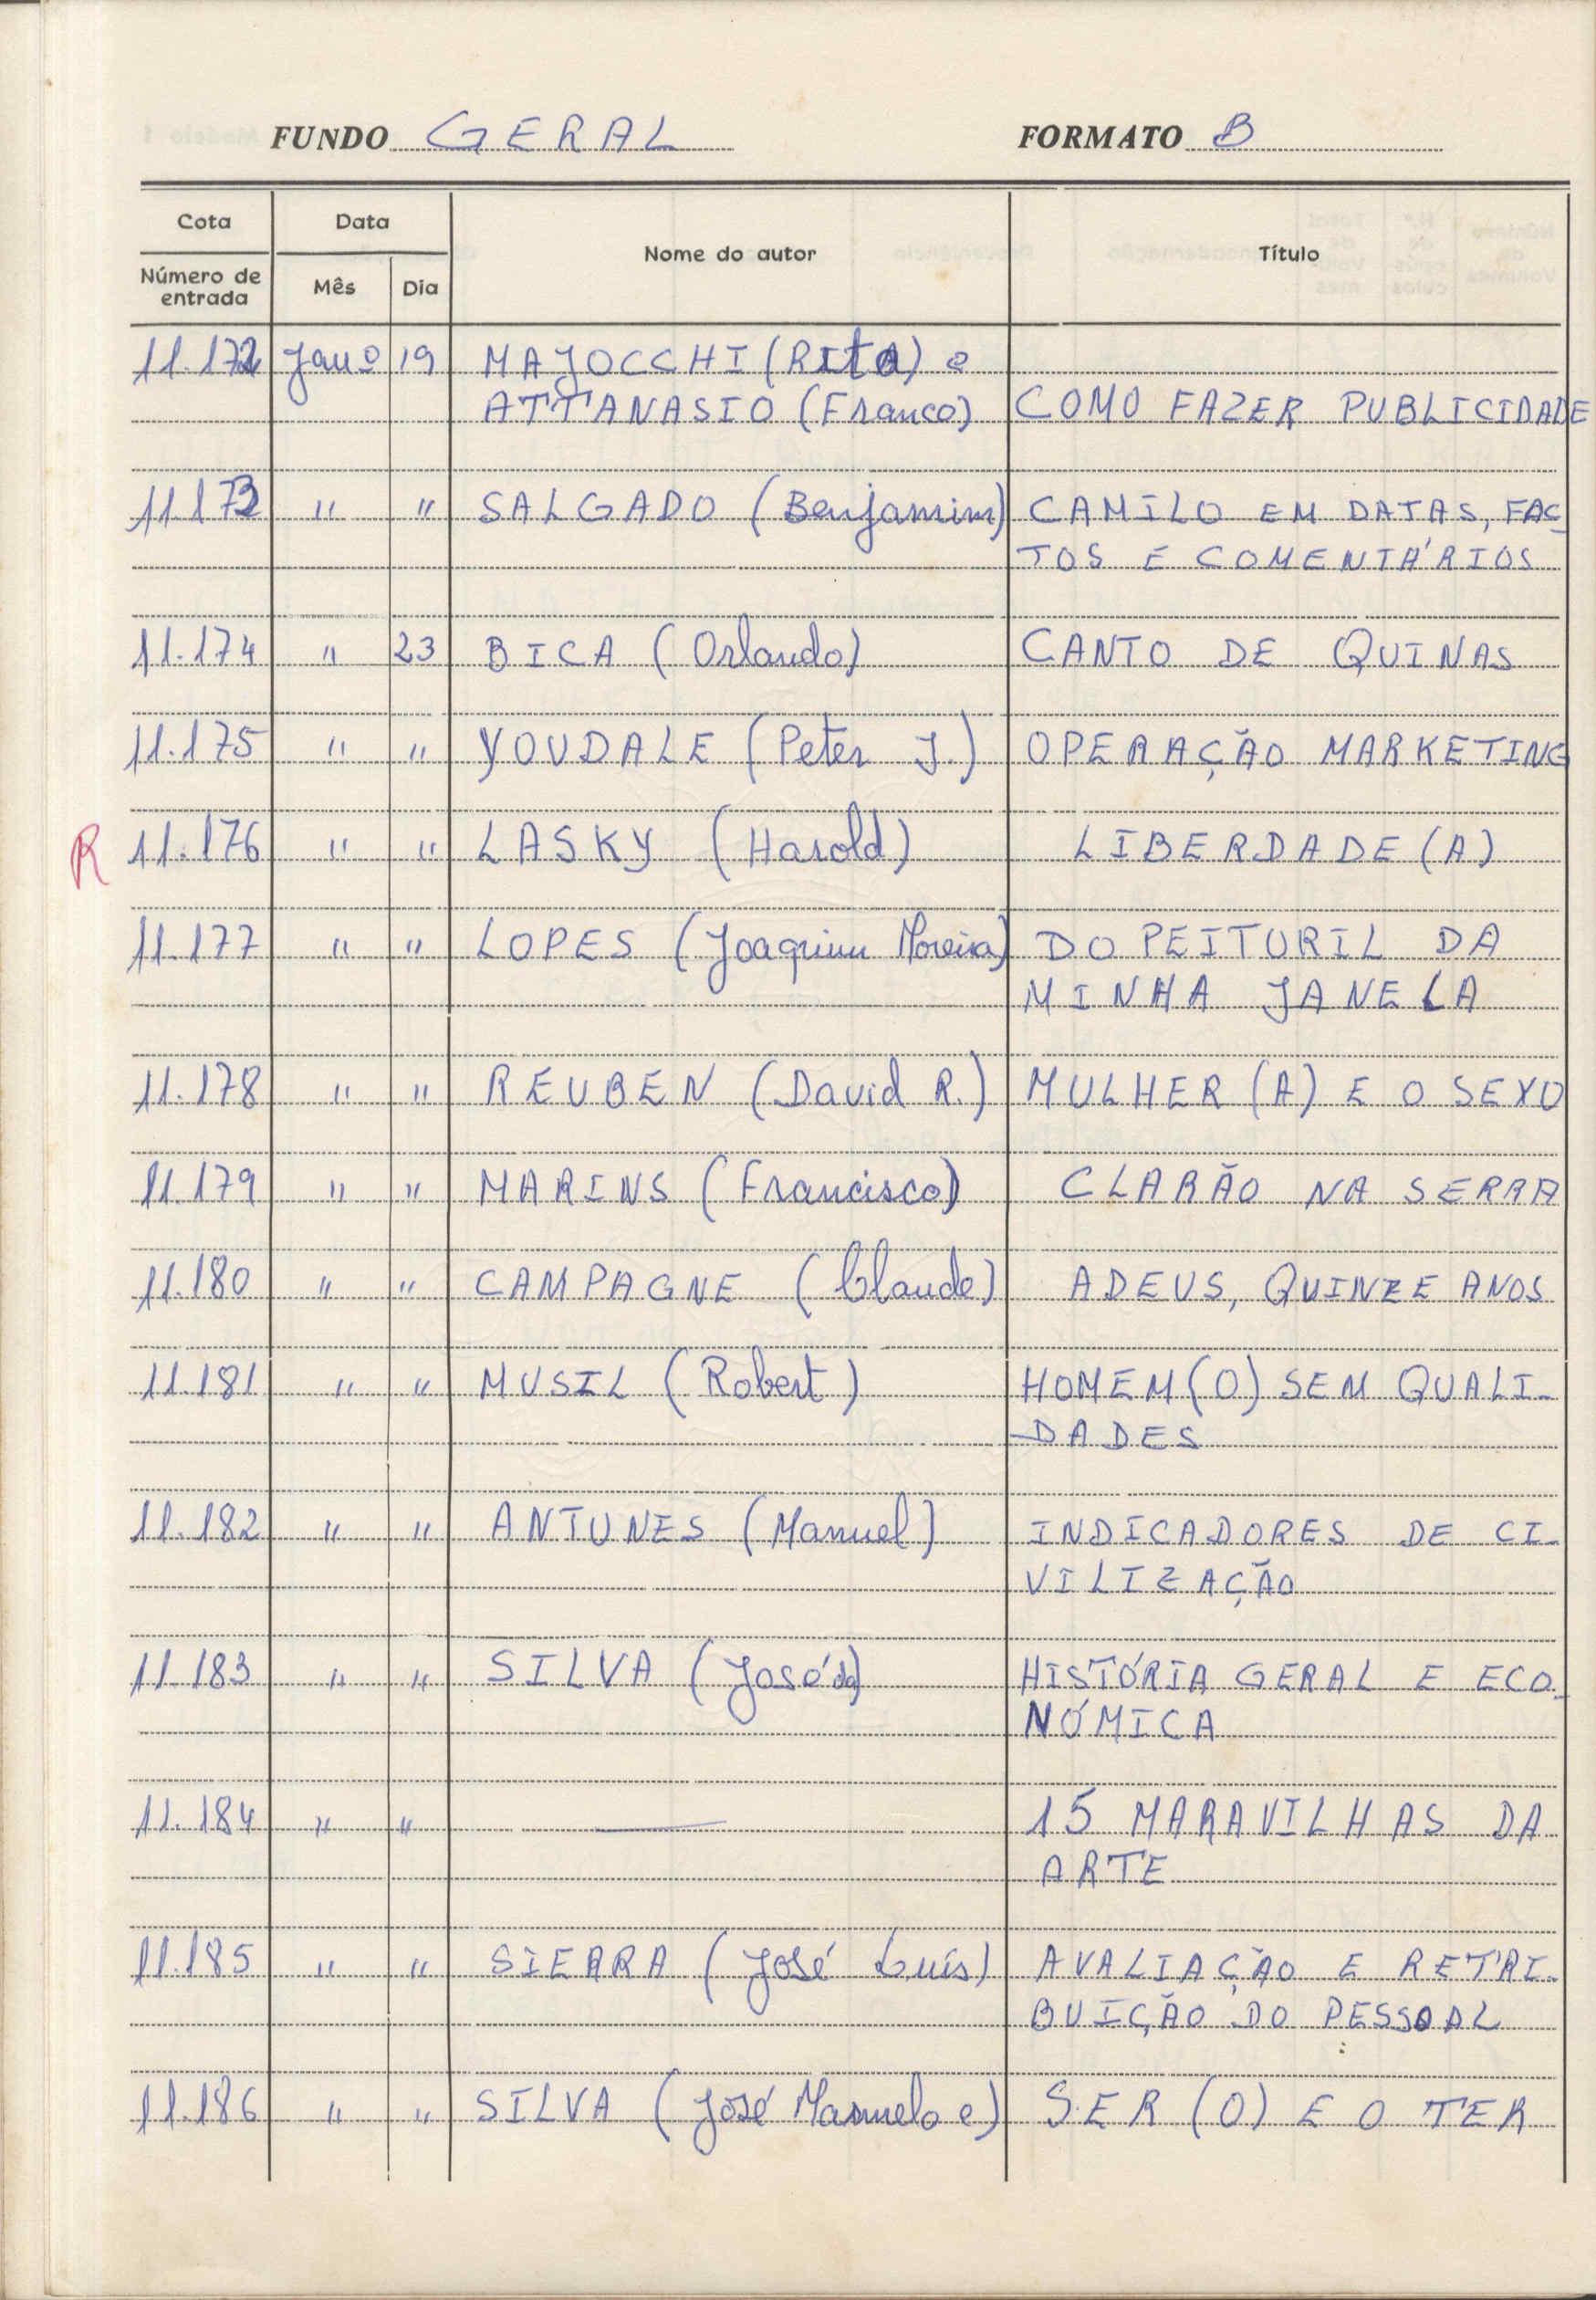 FUNDO GERAL FORMATO B
Cota Data Nome do autor Título
Número de entrada Mês Dia
11.172 Janº 19 MAJOCCHI (RitA) e
ATTANASIO (Franco) COMO FAZER PUBLICIDADE
11.173 " " SALGADO (Benjamim) CAMILO EM DATAS, FAC-
TOS E COMENTÁRIOS
11.174 " 23 BICA (Orlando) CANTO DE QUINAS
11.175 " " YOUDALE (Peter J.) OPERAÇÃO MARKETING
R 11.176 " " LASKY (Harold) LIBERDADE (A)
11.177 " " LOPES (Joaquim Moreira) DO PEITURIL DA
MINHA JANELA
11.178 " " REUBEN (David R.) MULHER (A) E O SEXO
11.179 " " MARINS (Francisco) CLARÃO NA SERRA
11.180 " " CAMPAGNE (Claude) ADEUS, QUINZE ANOS
11.181 " " MUSIL (Robert) HOMEM (O) SEM QUALI-
DADES
11.182 " " ANTUNES (Manuel) INDICADORES DE CI-
VILIZAÇÃO
11.183 " " SILVA (José da) HISTÓRIA GERAL E ECO-
NÓMICA
11.184 " " — 15 MARAVILHAS DA
ARTE
11.185 " " SIERRA (José Luís) AVALIAÇÃO E RETRI-
BUIÇÃO DO PESSOAL
11.186 " " SILVA (José Manuel o e) SER (O) E O TER